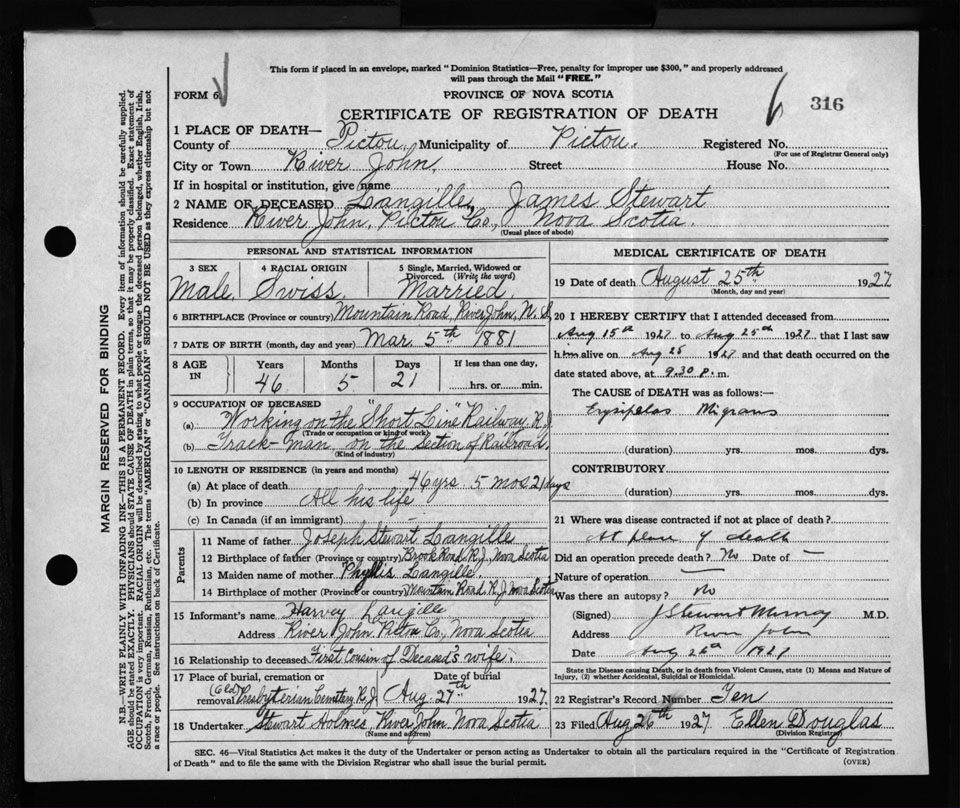 This form if placed in an envelope, marked "Dominion Statistics—Free, penalty for improper use $300," and properly addressed
will pass through the Mail "FREE."
FORM 6.
PROVINCE OF NOVA SCOTIA
316
CERTIFICATE OF REGISTRATION OF DEATH
1 PLACE OF DEATH—
County of Pictou, Municipality of Pictou. Registered No.
(For use of Registrar General only)
City or Town River John, Street House No.
If in hospital or institution, give name
2 NAME OF DECEASED Langille, James Stewart
Residence River John, Pictou Co., Nova Scotia.
(Usual place of abode)
PERSONAL AND STATISTICAL INFORMATION
3 SEX 4 RACIAL ORIGIN 5 Single, Married, Widowed or
Divorced. (Write the word)
Male. Swiss. Married.
6 BIRTHPLACE (Province or country) Mountain Road, River John, N.S.
7 DATE OF BIRTH (month, day and year) Mar. 5th 1881
8 AGE IN Years Months Days If less than one day,
46 5 21 hrs. or min.
9 OCCUPATION OF DECEASED
(a) Working on the "Short Line" Railway. R.J.
(Trade or occupation or kind of work)
(b) Track-man on the section of Railroad.
(Kind of industry)
10 LENGTH OF RESIDENCE (in years and months)
(a) At place of death 46 yrs. 5 mos 21 days
(b) In province All his life
(c) In Canada (if an immigrant)
Parents
11 Name of father Joseph Stewart Langille
12 Birthplace of father (Province or country) Brook Road R.J. Nova Scotia
13 Maiden name of mother Phyllis Langille.
14 Birthplace of mother (Province or country) Mountain Road. R.J. Nova Scotia
15 Informant's name Harvey Langille
Address River John. Pictou Co., Nova Scotia
16 Relationship to deceased First Cousin of Deceased's wife.
17 Place of burial, cremation or Date of burial
removal (Old) Presbyterian Cemetery R.J. Aug. 27th 1927.
18 Undertaker Stewart Holmes, River John, Nova Scotia
(Name and address)
MEDICAL CERTIFICATE OF DEATH
19 Date of death August 25th 1927.
(Month, day and year)
20 I HEREBY CERTIFY that I attended deceased from
Aug 15th 1927 to Aug 25th 1927, that I last saw
him alive on Aug 25 1927 and that death occurred on the
date stated above, at 9.30 p. m.
The CAUSE OF DEATH was as follows:
Erysipelas Migrans
(duration) yrs. mos. dys.
CONTRIBUTORY
(duration) yrs. mos. dys.
21 Where was disease contracted if not at place of death?
At place of death
Did an operation precede death? No Date of —
Nature of operation —
Was there an autopsy? No
(Signed) J Stewart Murray M.D.
Address River John
Date Aug 26th 1927
State the Disease causing Death, or in death from Violent Causes, state (1) Means and Nature
of Injury, (2) whether Accidental, Suicidal or Homicidal.
22 Registrar's Record Number Ten
23 Filed Aug 26th 1927 Ellen Douglas
(Division Registrar)
SEC. 46—Vital Statistics Act makes it the duty of the Undertaker or person acting as Undertaker to obtain all the particulars required in the "Certificate of Registration
of Death" and to file the same with the Division Registrar who shall issue the burial permit.
(OVER)
MARGIN RESERVED FOR BINDING
N.B.—WRITE PLAINLY WITH UNFADING INK—THIS IS A PERMANENT RECORD. Every item of information should be carefully supplied.
AGE should be stated EXACTLY. PHYSICIANS should STATE CAUSE OF DEATH in plain terms, so that it may be properly classified. Exact statement of
OCCUPATION is very important. RACIAL ORIGIN will be described by stating to what people or tongue the deceased person belonged, whether English, Irish,
Scotch, French, German, Russian, Ruthenian, etc. The terms "AMERICAN" or "CANADIAN" SHOULD NOT BE USED as they express citizenship but not
a race or people. See instructions on back of Certificate.